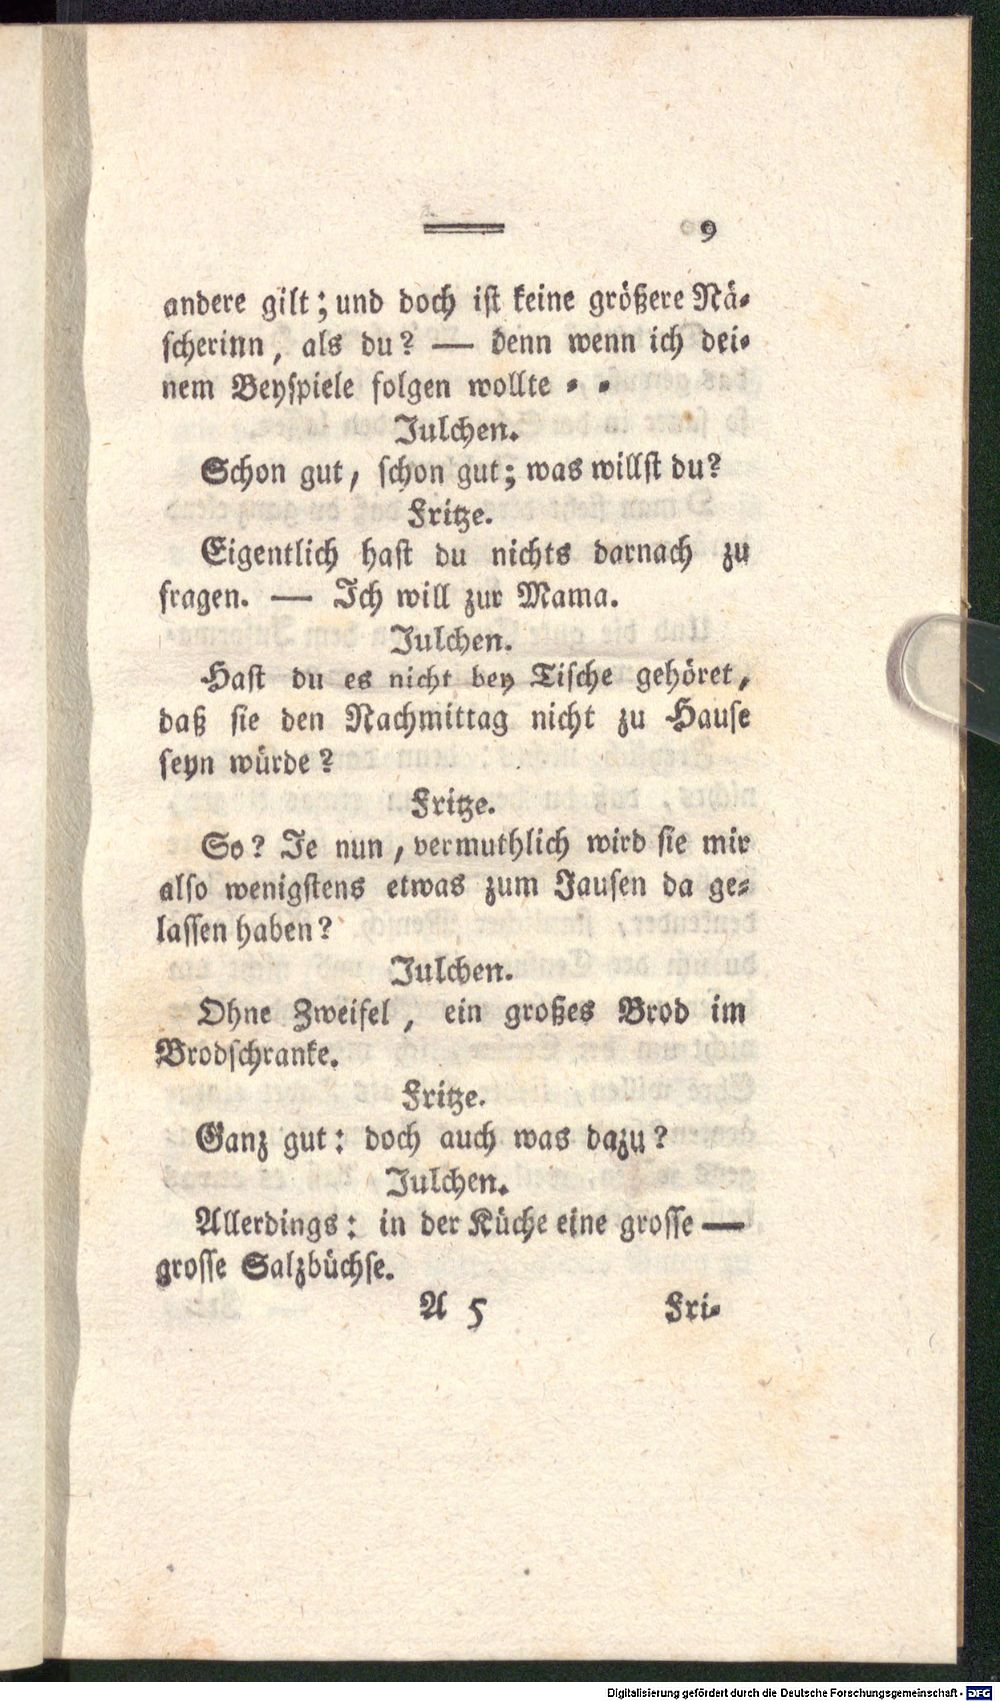 9
andere gilt; und doch ist keine größere Nä-
scherinn, als du? — denn wenn ich dei-
nem Beyspiele folgen wollte - -
Julchen.
Schon gut, schon gut; was willst du?
Fritze.
Eigentlich hast du nichts darnach zu
fragen. — Ich will zur Mama.
Julchen.
Hast du es nicht bey Tische gehöret,
daß sie den Nachmittag nicht zu Hause
seyn würde?
Fritze.
So? Je nun, vermuthlich wird sie mir
also wenigstens etwas zum Jausen da ge-
lassen haben?
Julchen.
Ohne Zweifel, ein großes Brod im
Brodschranke.
Fritze.
Ganz gut: doch auch was dazu?
Julchen.
Allerdings: in der Küche eine grosse —
grosse Salzbüchse.
A 5 Fri-
Digitalisierung gefördert durch die Deutsche Forschungsgemeinschaft - DFG